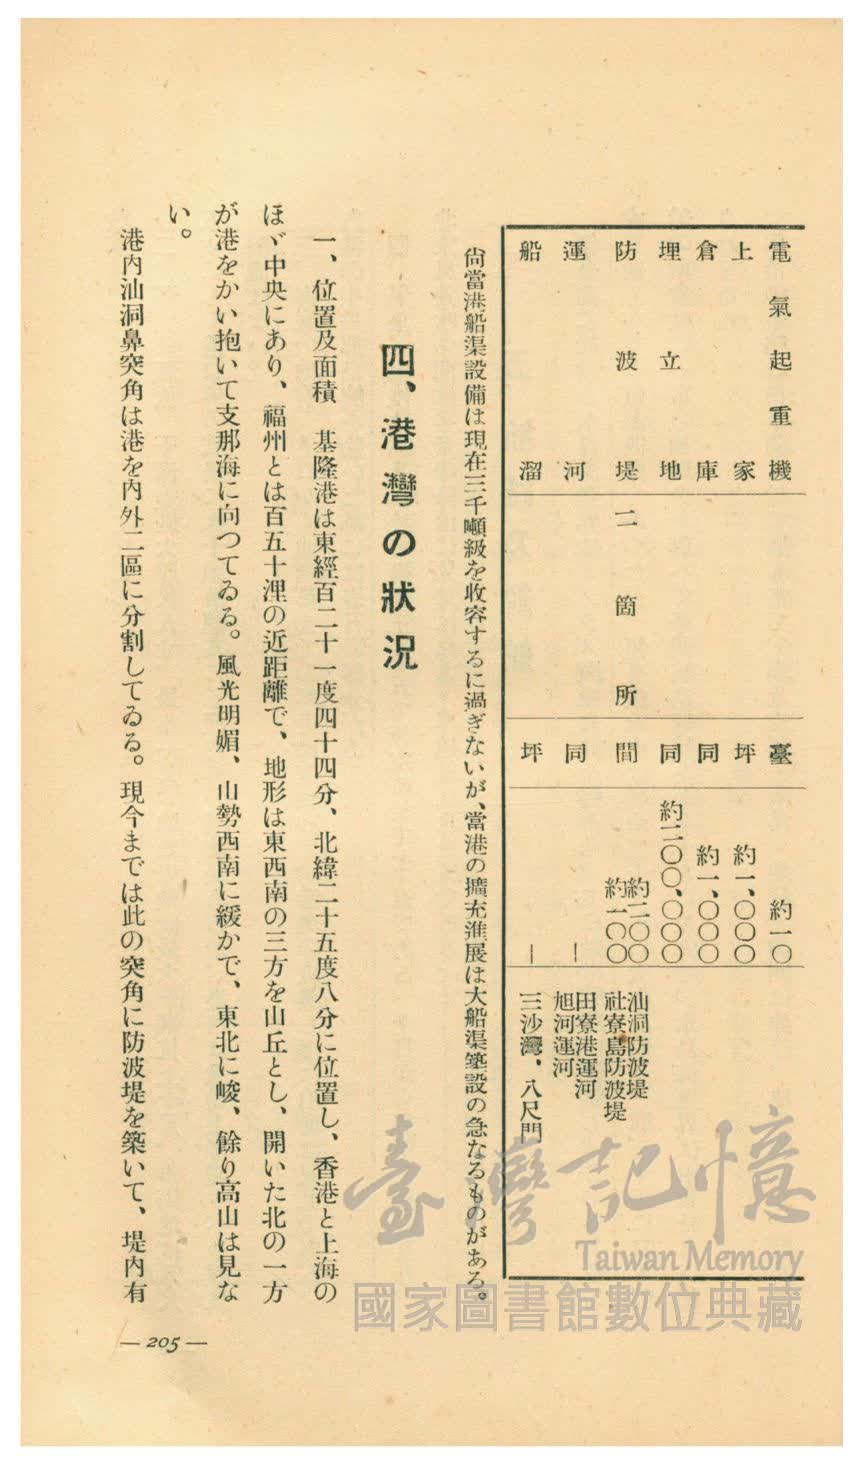 電氣起重機 臺 約一〇
上家 坪 約一、〇〇〇
倉庫 同 約一、〇〇〇
埋立地 同 約二〇〇、〇〇〇
防波堤 二箇所 間 約二〇〇 約一〇〇 仙洞防波堤 社寮島防波堤
運河 同 ― 田寮港運河 旭河運河
船溜 坪 ― 三沙灣、八尺門
尙當港船渠設備は現在三千噸級を收容するに過ぎないが、當港の擴充進展は大船渠築設の急なるものがある。
四、港灣の狀況
一、位置及面積 基隆港は東經百二十一度四十四分、北緯二十五度八分に位置し、香港と上海の
ほゞ中央にあり、福州とは百五十浬の近距離で、地形は東西南の三方を山丘とし、開いた北の一方
が港をかい抱いて支那海に向つてゐる。風光明媚、山勢西南に緩かで、東北に峻、餘り高山は見な
い。
港内仙洞鼻突角は港を内外二區に分割してゐる。現今までは此の突角に防波堤を築いて、堤内有
— 205 —
臺灣記憶
Taiwan Memory
國家圖書館數位典藏